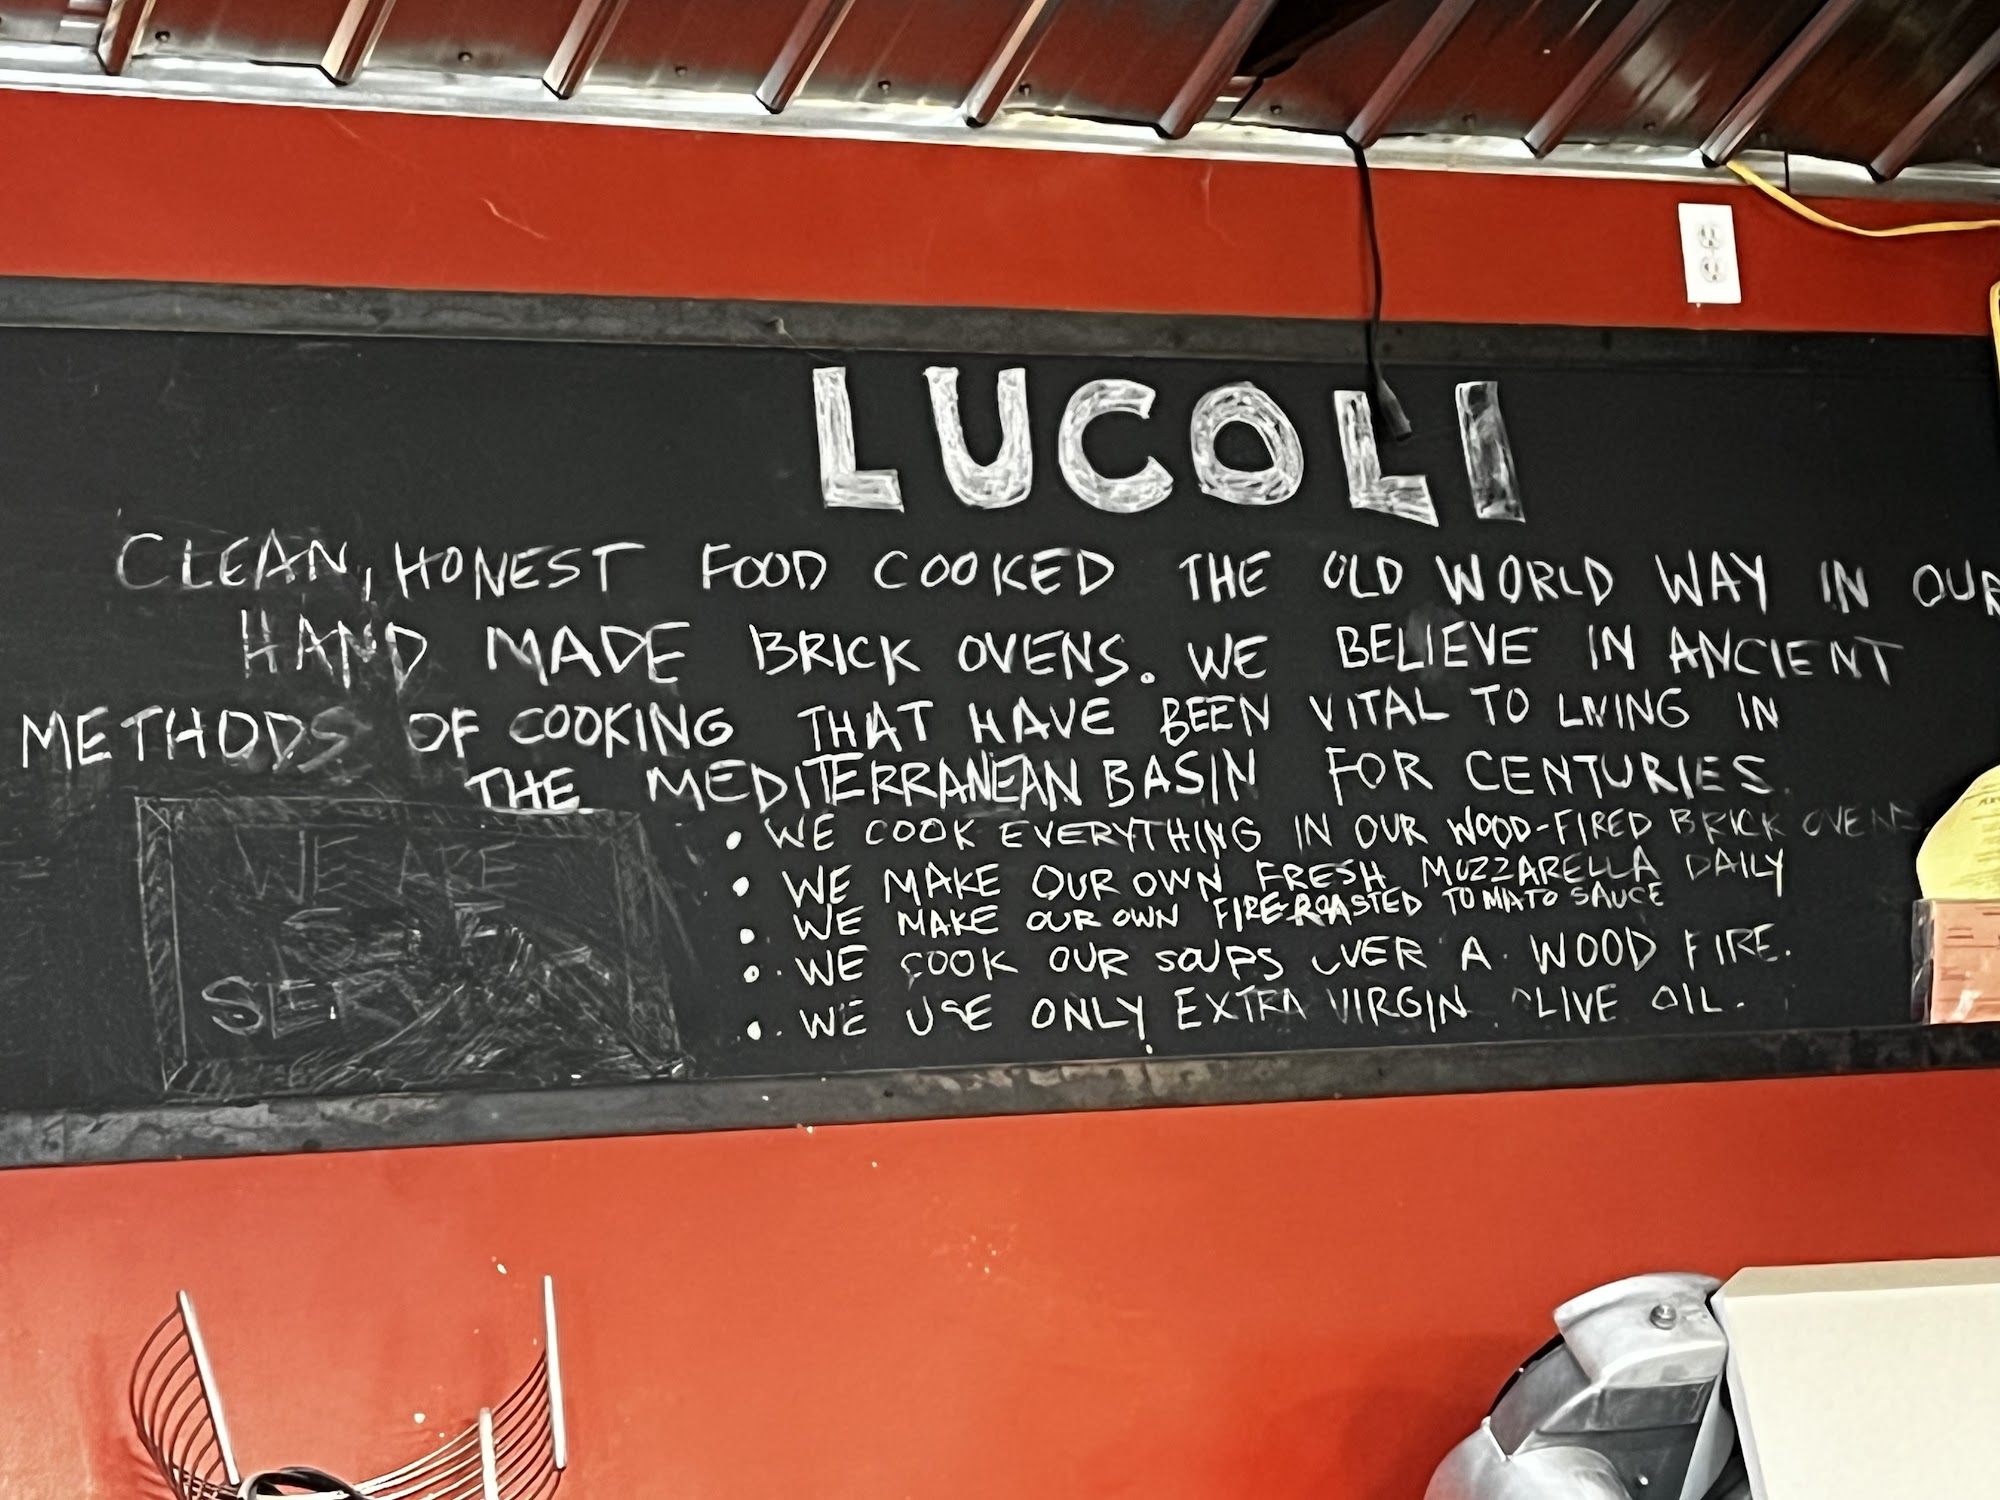 LUCOLI
CLEAN, HONEST FOOD COOKED THE OLD WORLD WAY IN OUR
HAND MADE BRICK OVENS. WE BELIEVE IN ANCIENT
METHODS OF COOKING THAT HAVE BEEN VITAL TO LIVING IN
THE MEDITERRANEAN BASIN FOR CENTURIES.
• WE COOK EVERYTHING IN OUR WOOD-FIRED BRICK OVENS
• WE MAKE OUR OWN FRESH MUZZARELLA DAILY
• WE MAKE OUR OWN FIRE-ROASTED TOMATO SAUCE
• WE COOK OUR SOUPS OVER A WOOD FIRE.
• WE USE ONLY EXTRA VIRGIN OLIVE OIL.
WE ARE